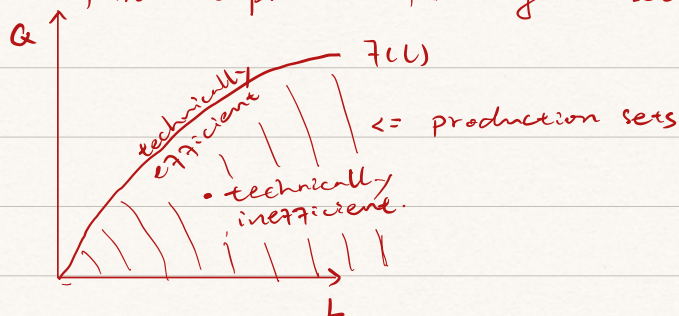 Q
f(L)
technically
efficient
<= production sets
• technically
inefficient.
L